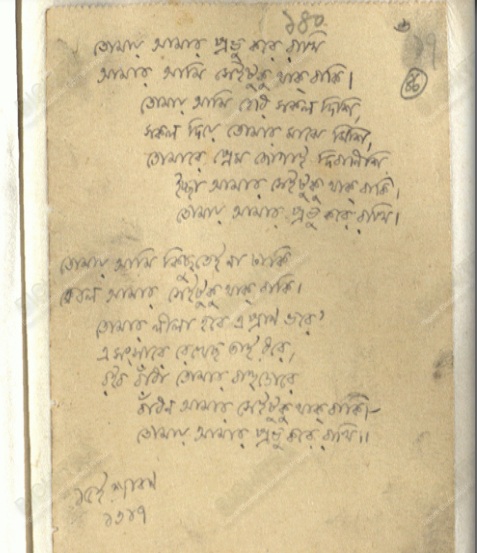 ১৪০
তোমায় আমার প্রভু করে রাখি
আমার আমি সেইটুকু থাক্ বাকি।
তোমায় আমি হেরি সকল দিশি,
সকল দিয়ে তোমার মাঝে মিশি,
তোমারে প্রেম জোগাই দিবানিশি,
ইচ্ছা আমার সেইটুকু থাক্ বাকি,
তোমায় আমার প্রভু করে রাখি।
তোমায় আমি কিছুতেই না ঢাকি
কেবল আমার সেইটুকু থাক্ বাকি।
তোমার লীলা হবে এ প্রাণ ভরে'
এ সংসারে রেখেছ তাই ধরে,
রইব বাঁধা তোমার বাহুডোরে
বাঁধন আমার সেইটুকু থাক্ বাকি—
তোমায় আমার প্রভু করে রাখি॥
১৫ই শ্রাবণ
১৩১৭